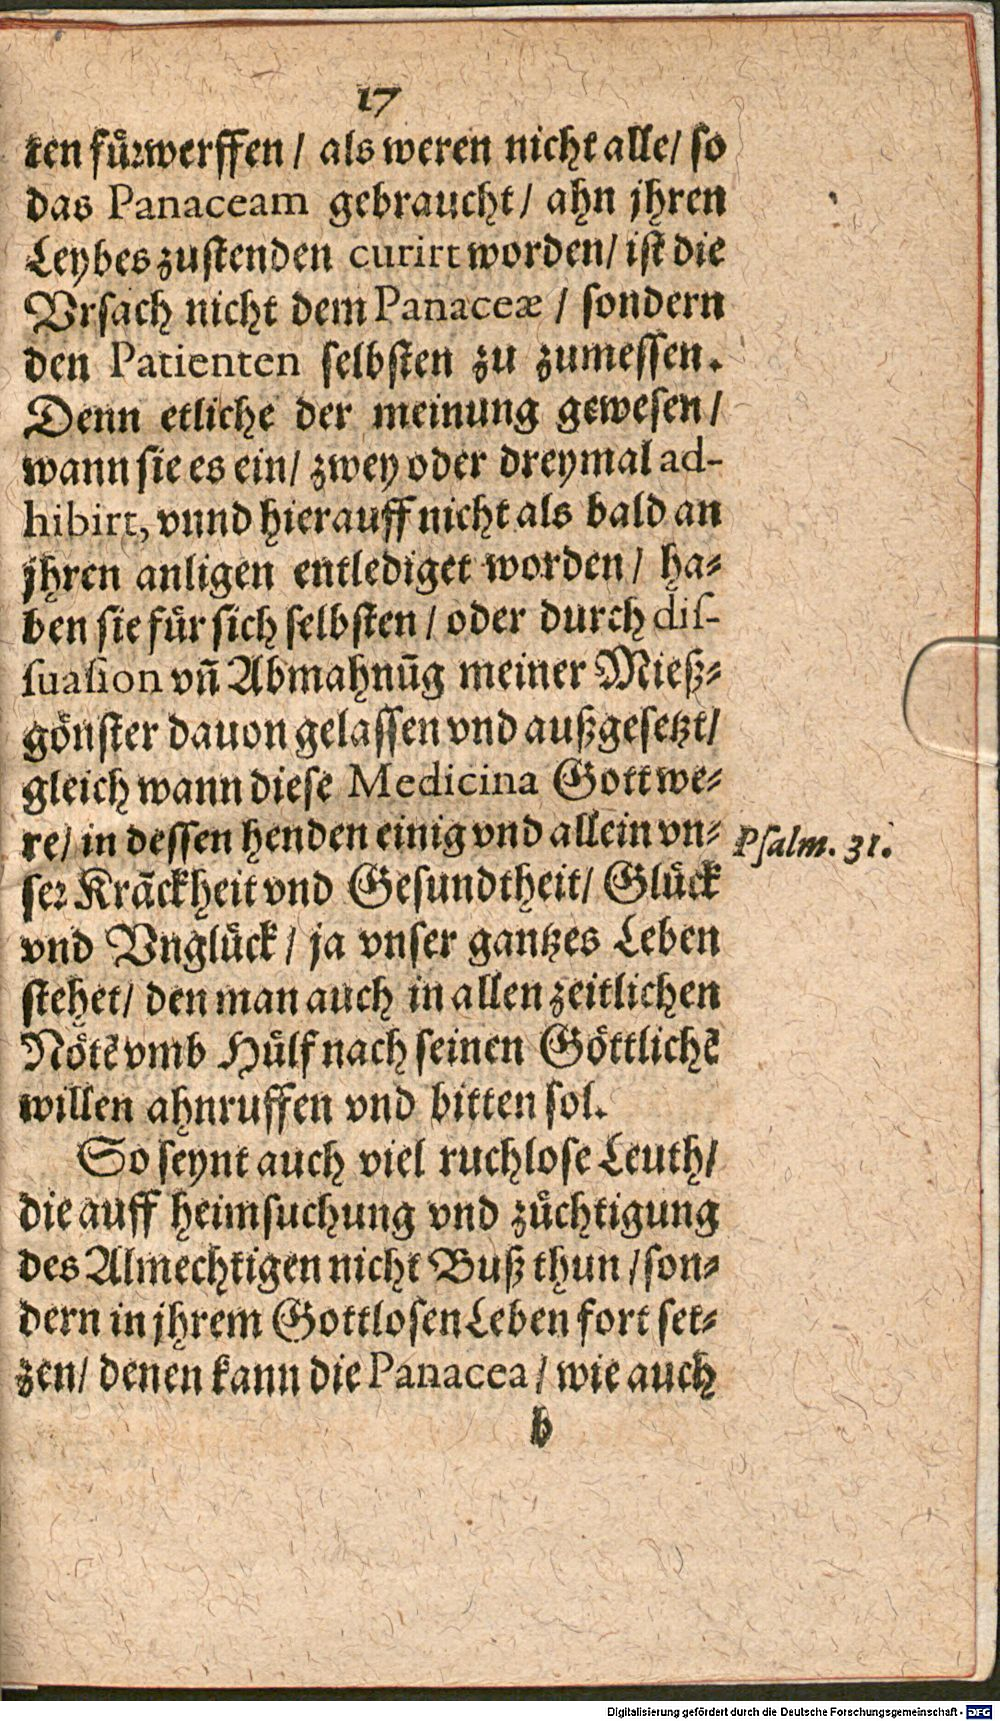 17
ten fürwerffen / als weren nicht alle / so
das Panaceam gebraucht / ahn jhren
Leybes zustenden curirt worden / ist die
Vrsach nicht dem Panaceæ / sondern
den Patienten selbsten zu zumessen.
Denn etliche der meinung gewesen /
wann sie es ein / zwey oder dreymal ad-
hibirt, vnnd hierauff nicht als bald an
jhren anligen entlediget worden / ha-
ben sie für sich selbsten / oder durch dis-
suasion vñ Abmahnūg meiner Mieß-
gönster dauon gelassen vnd außgesetzt /
gleich wann diese Medicina Gott we-
re / in dessen henden einig vnd allein vn-
Psalm. 31.
ser Krāckheit vnd Gesundtheit / Glück
vnd Vnglück / ja vnser gantzes Leben
stehet / den man auch in allen zeitlichen
Nötē vmb Hülf nach seinen Göttlichē
willen ahnruffen vnd bitten sol.
So seynt auch viel ruchlose Leuth /
die auff heimsuchung vnd züchtigung
des Almechtigen nicht Buß thun / son-
dern in jhrem Gottlosen Leben fort set-
zen / denen kann die Panacea / wie auch
b
Digitalisierung gefördert durch die Deutsche Forschungsgemeinschaft - DFG